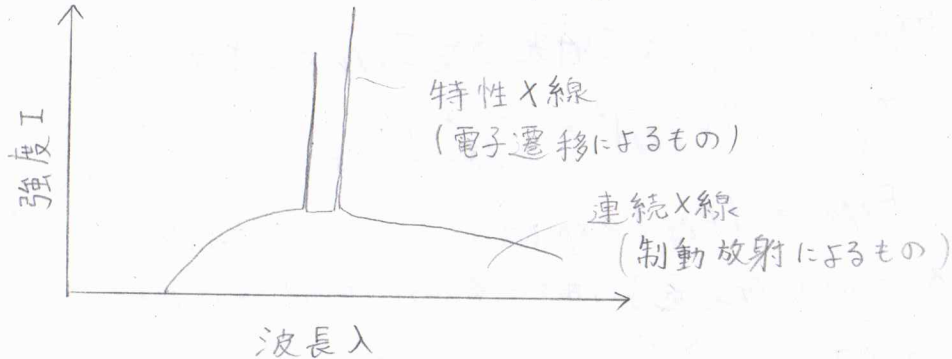 強度 I
特性X線
(電子遷移によるもの)
連続X線
(制動放射によるもの)
波長 λ